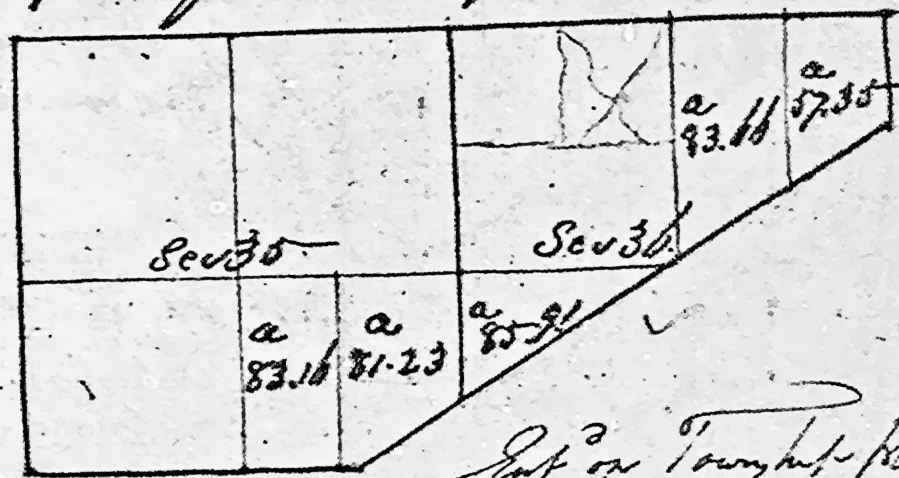 a
83.66
a
57.35
Sec 35
Sec 36
a
83.16
a
81.23
a
85.91
on Township